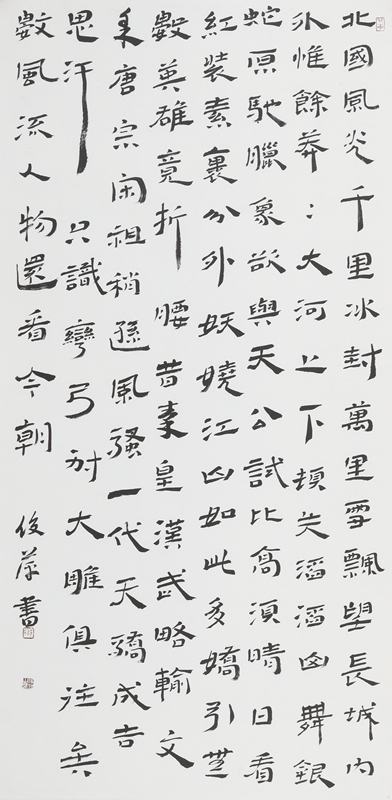 北國風光千里冰封萬里雪飄望長城內
外惟餘莽〻大河上下頓失滔滔山舞銀
蛇原馳臘象欲與天公試比高須晴日看
紅裝素裹分外妖嬈江山如此多嬌引無
數英雄竟折腰昔秦皇漢武略輸文
采唐宗宋祖稍遜風騷一代天驕成吉
思汗只識彎弓射大雕俱往矣
數風流人物還看今朝
俊萍書